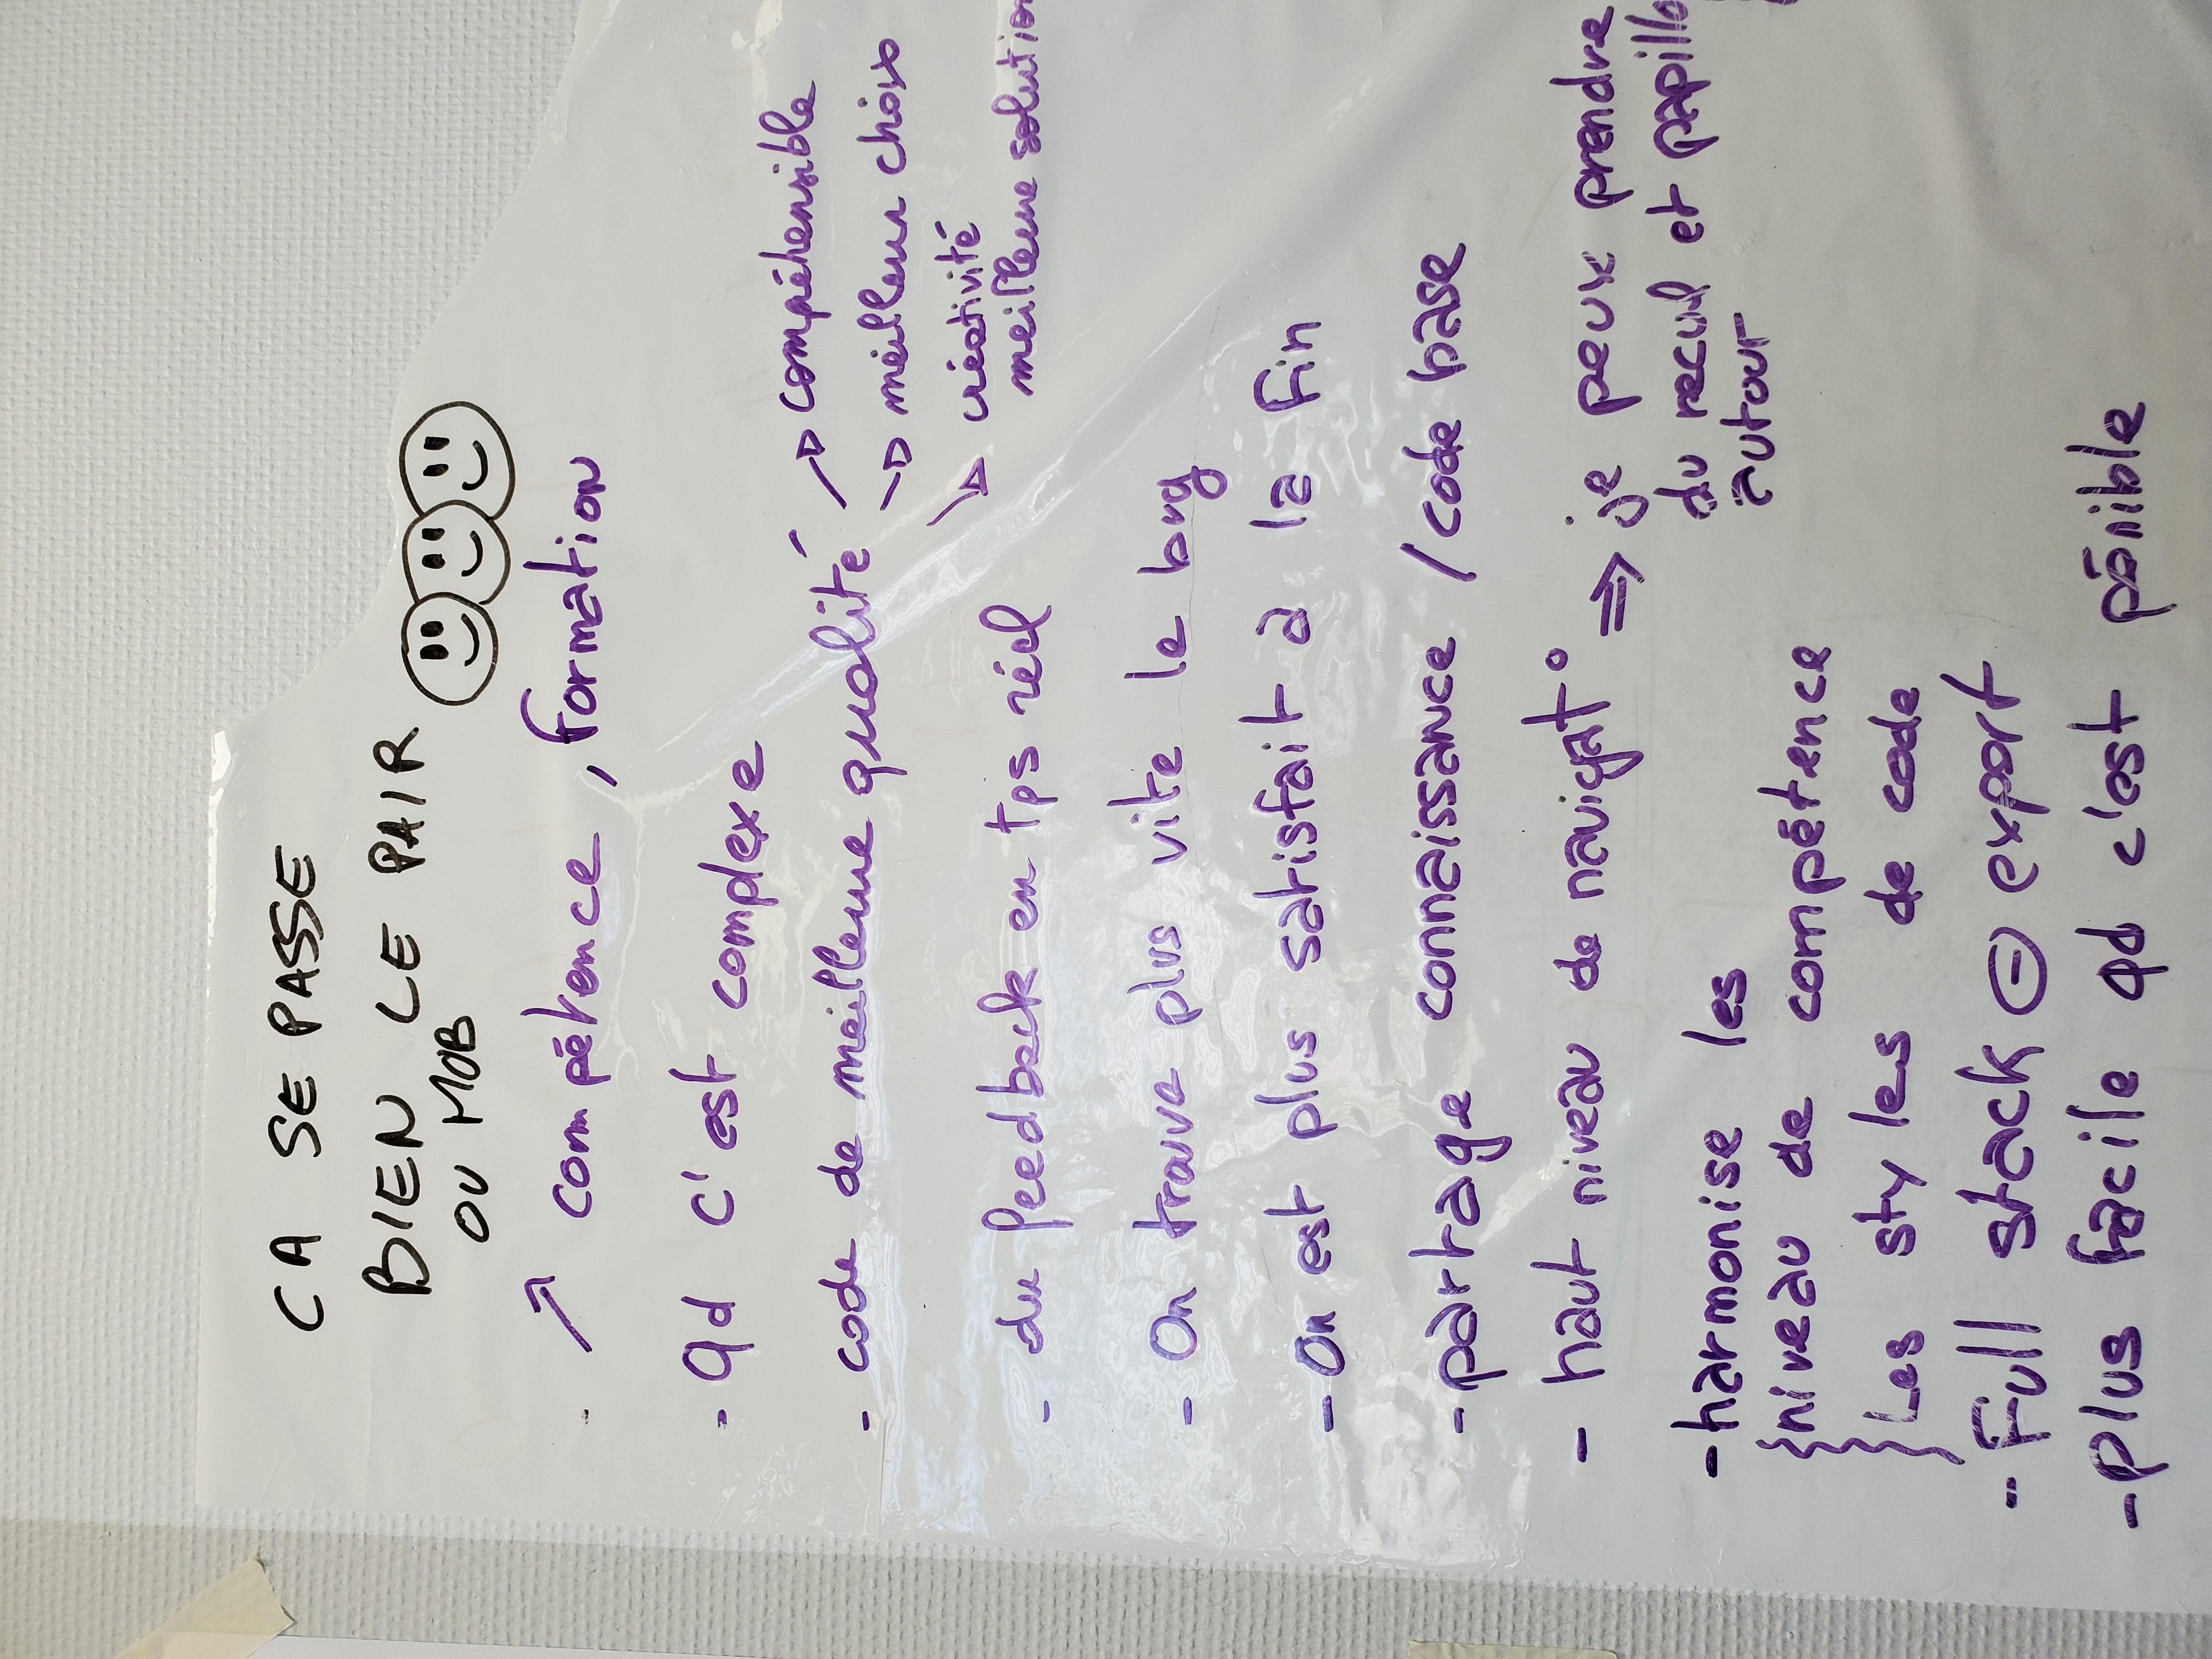 CA SE PASSE
BIEN LE PAIR
OU MOB
- ↗ compétence, formation
- Qd c'est complexe
- code de meilleure qualité
→ compréhensible
→ meilleur choix
→ créativité
meilleure solution
- du feedback en tps réel
- On trouve plus vite le bug
- On est plus satisfait a la fin
- partage connaissance / code base
- haut niveau de navigat° ⇒ je peux prendre
du recul et papillo
autour
- harmonise les
{ niveau de compétence
{ Les styles de code
- Full stack ⊖ expert
- plus facile qd c'est pénible